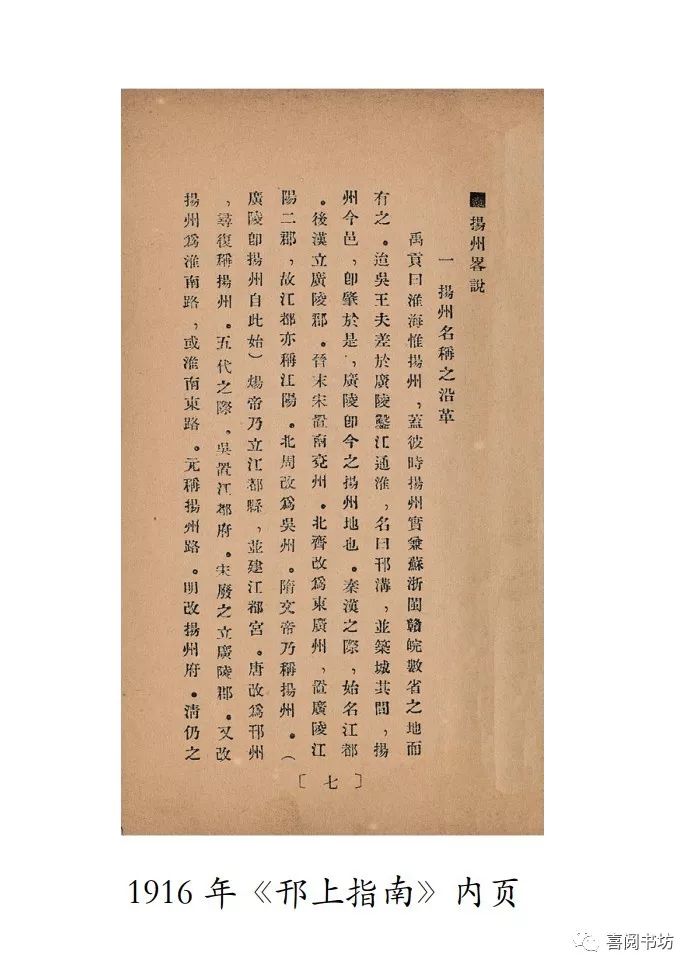 揚州畧說
一 揚州名稱之沿革
禹貢曰淮海惟揚州，蓋彼時揚州實兼蘇浙閩贛皖數省之地而
有之。迨吳王夫差於廣陵鑿江通淮，名曰邗溝，並築城其間，揚
州今邑，卽肇於是，廣陵卽今之揚州地也。秦漢之際，始名江都
。後漢立廣陵郡。晉末宋置南兗州。北齊改爲東廣州，置廣陵江
陽二郡，故江都亦稱江陽。北周改爲吳州。隋文帝乃稱揚州。（
廣陵卽揚州自此始）煬帝乃立江都縣，並建江都宮。唐改爲邗州
，尋復稱揚州。五代之際，吳置江都府。宋廢之立廣陵郡。又改
揚州爲淮南路，或淮南東路。元稱揚州路。明改揚州府。清仍之
〔七〕
1916 年《邗上指南》内页
喜阅书坊